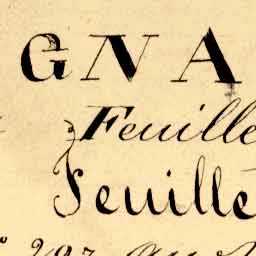 GNA
Feuille
Feuille